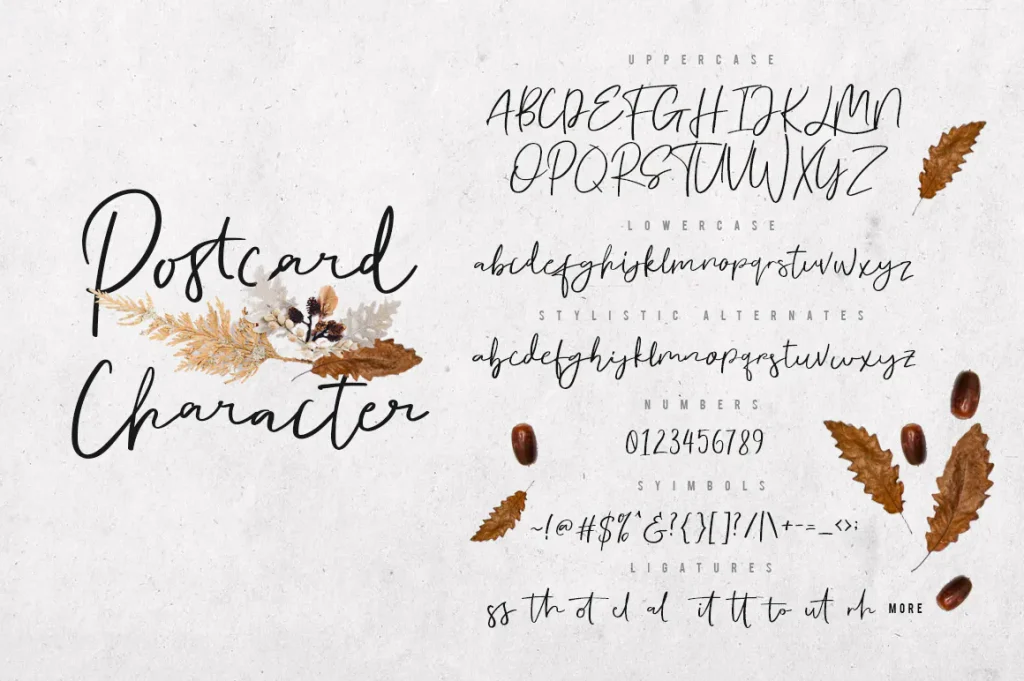 Postcard
Character
UPPERCASE
ABCDEFGHIJKLMN
OPQRSTUVWXYZ
LOWERCASE
abcdefghijklmnopqrstuvwxyz
STYLISTIC ALTERNATES
abcdefghijklmnopqrstuvwxyz
NUMBERS
0123456789
SYIMBOLS
~!@#$%^&?{}[]?/|\+-=_<>;
LIGATURES
ss th ot cl al it tt to ut rh MORE